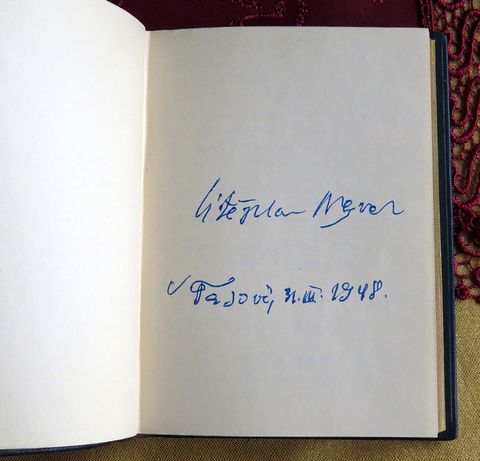 Vítězslav Nezval
V 31. III. 1948.